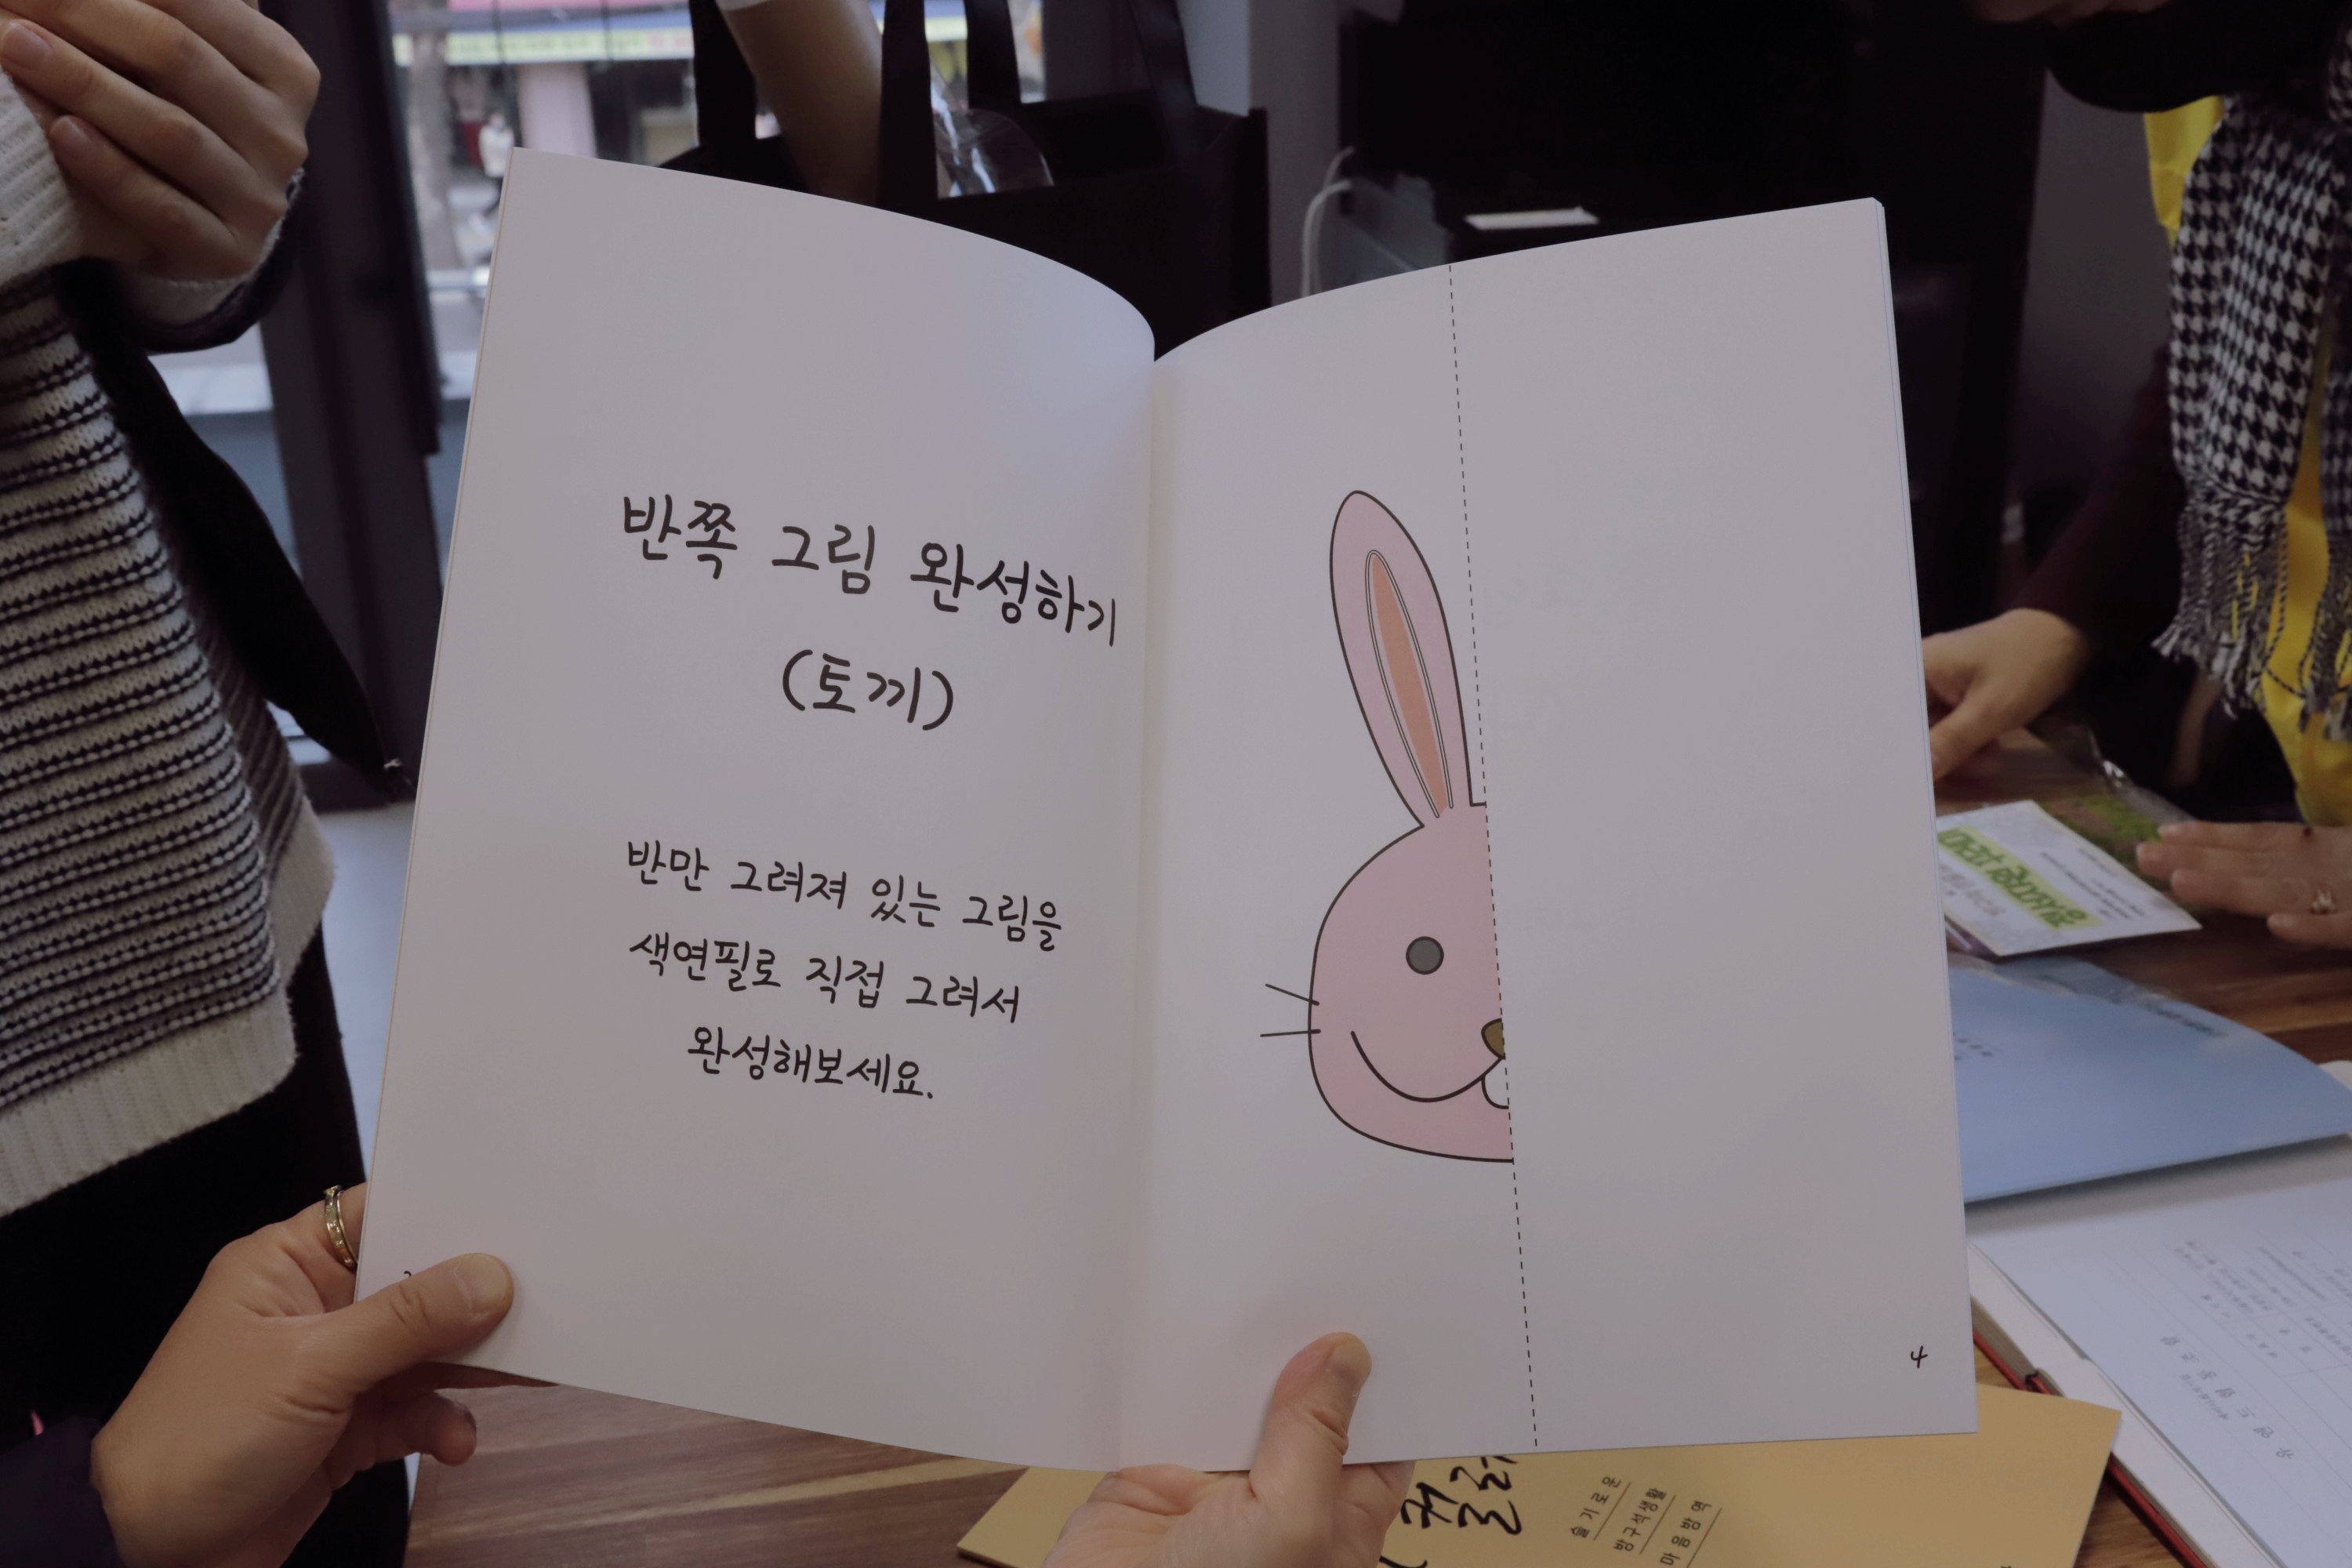 반쪽 그림 완성하기
(토끼)
반만 그려져 있는 그림을
색연필로 직접 그려서
완성해보세요.
4
슬기로운
방구석생활
마음방역